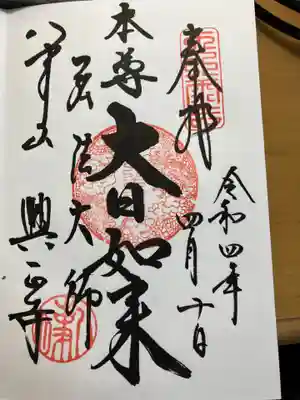 奉拝
令和四年
四月十日
本尊
大日如来
弘法大師
八事山 興正寺